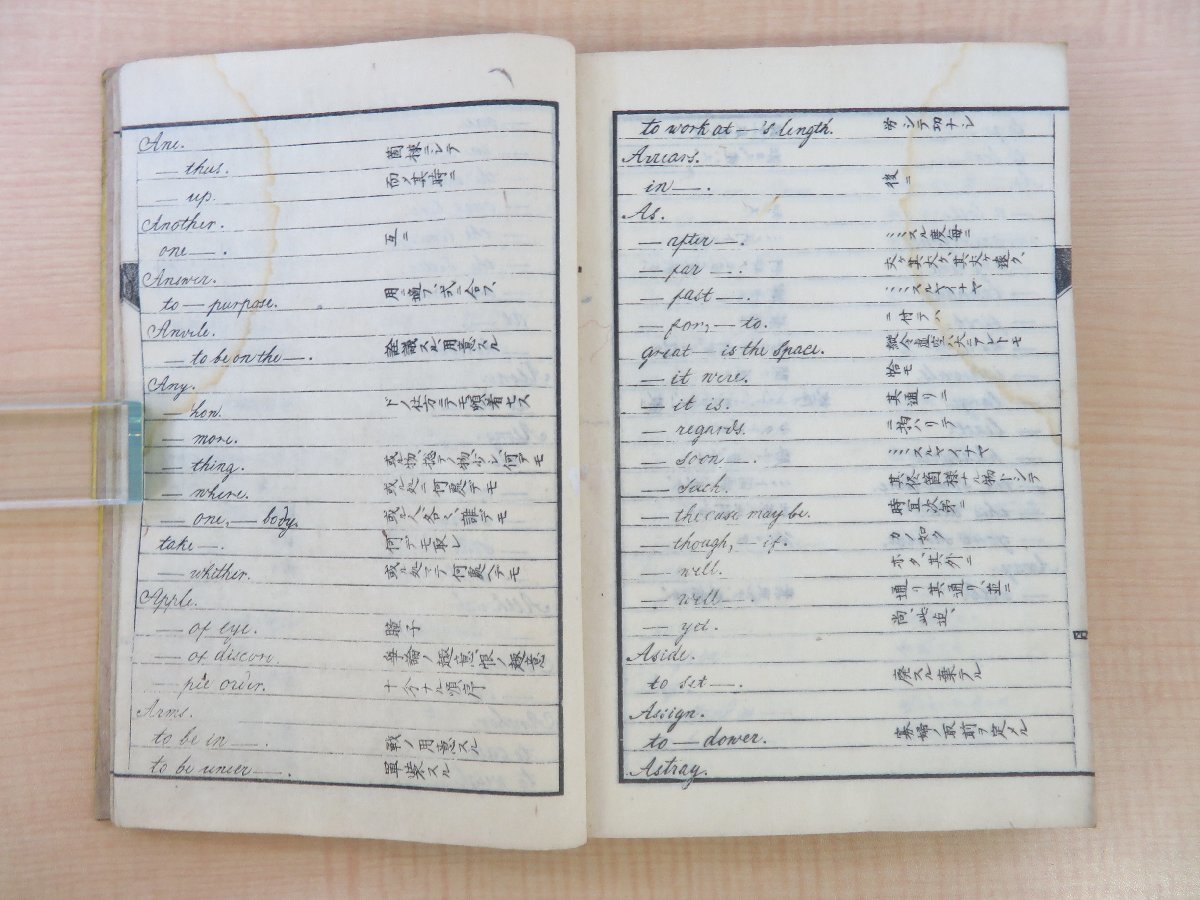 Ane.
— thus. 箇様ニシテ
— up. 而ノ其時ニ
Another.
one — . 互ニ
Answer.
to — purpose. 用ニ適フ、式ニ合フ、
Anvile.
— to be on the — . 詮議スル、用意スル
Any.
— hon. ドノ仕方ニテモ頓着セス
— more.
— thing. 或ル物、捴テノ物、少シ、何デモ
— where. 或ル処ニ何處デモ
— one, — body. 或ル人、各々、誰デモ
take — . 何デモ取レ
— whither. 或ル処マテ何處ヘデモ
Apple.
— of eye. 瞳子
— of discon. 争論ノ趣意、恨ノ趣意
— pie order. 十分ナル順序
Arms.
to be in — . 戦ノ用意スル
to be uneer — . 軍装スル
to work at — 's length. 労シテ功ナシ
Arrears.
in — . 後ニ
As.
— after — . ミミスル度毎ニ
— far — . 丈ケ其丈ケ、其丈ケ遠ク、
— fast — . ミミスルマイナヤ
— for, — to. ニ付テハ
great — is the space. 縦令虚空ハ大ニアレトモ
— it were. 恰モ
— it is. 其通リニ
— regards. ニ拘ハリテ
— soon — . ミミスルマイナヤ
— such. 其侭箇様ナル物トシテ
— the case may be. 時宜次第ニ
— though, — if. カノ如ク
— well. ホダ、其外ニ
— well — . 通リ其通リ、並ニ
— yet. 尚、此迠、
Aside.
to set — . 廃スル棄テル
Assign.
to — dower. 寡婦ノ取前ヲ定メル
Astray.